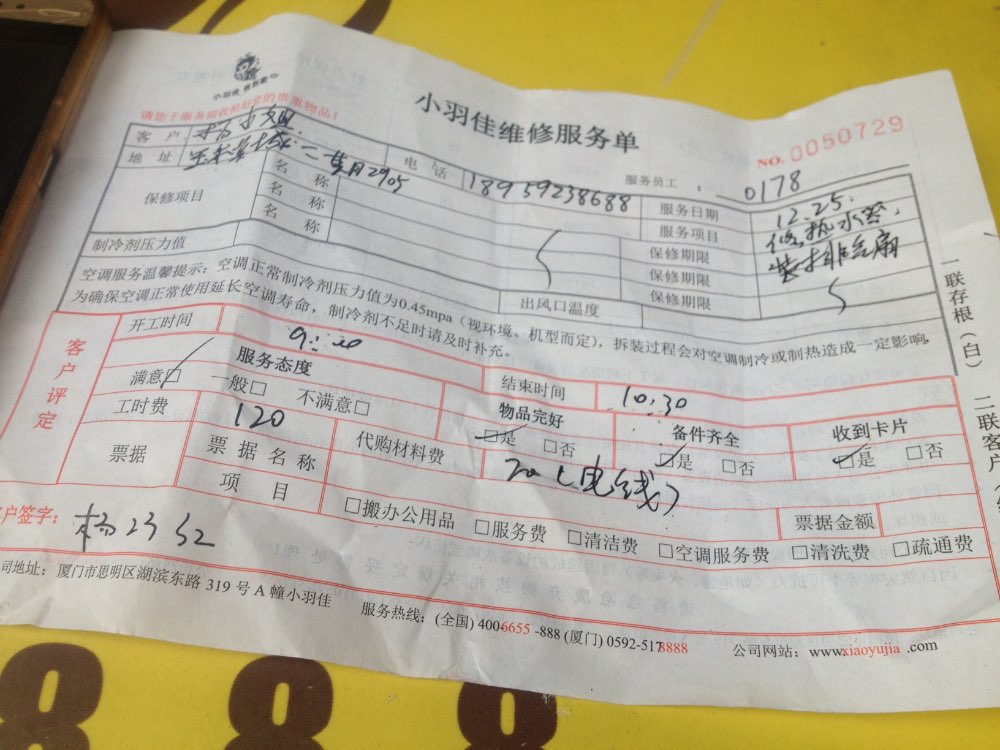 小羽佳
请您于服务前收拾好您的贵重物品!
小羽佳维修服务单
NO. 0050729
客 户
杨小姐
服务员工 : 0178
地 址
二隻月2905
电 话
18959238688
服务日期
12.25.
保修项目
名 称
名 称
名 称
服务项目
装排气扇
保修期限
保修期限
保修期限
制冷剂压力值
出风口温度
空调服务温馨提示:空调正常制冷剂压力值为0.45mpa(视环境、机型而定),拆装过程会对空调制冷或制热造成一定影响,
为确保空调正常使用延长空调寿命,制冷剂不足时请及时补充。
客户评定
开工时间
结束时间
10:30
服务态度
物品完好
备件齐全
收到卡片
满意□ 一般□ 不满意□
□是 □否
□是 □否
□是 □否
工时费
120
代购材料费
20(电线)
票据
票据名称
票据金额
项 目
□搬办公用品 □服务费 □清洁费 □空调服务费 □清洗费 □疏通费
户签字:
司地址:厦门市思明区湖滨东路 319 号 A 幢小羽佳
服务热线:(全国) 4006655-888 (厦门) 0592-5178888
公司网站:www.xiaoyujia.com
一联存根(白)
二联客户